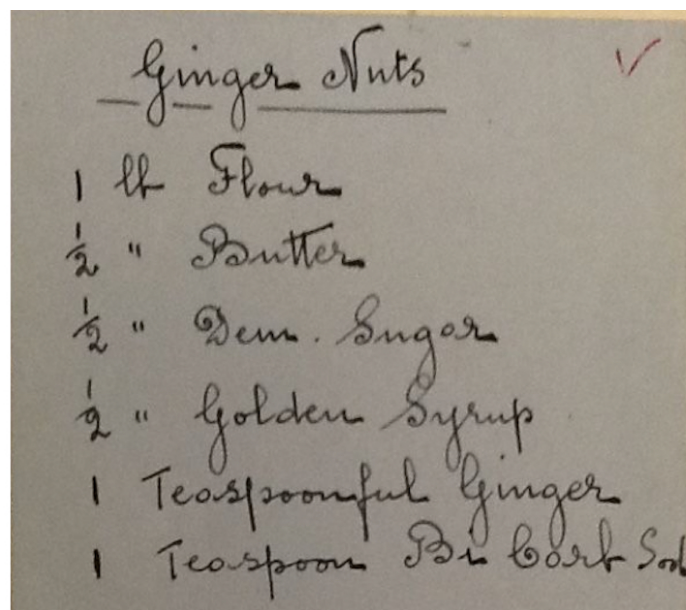 Ginger Nuts
1 lb Flour
1/2 " Butter
1/2 " Dem. Sugar
1/2 " Golden Syrup
1 Teaspoonful Ginger
1 Teaspoon Bi Carb